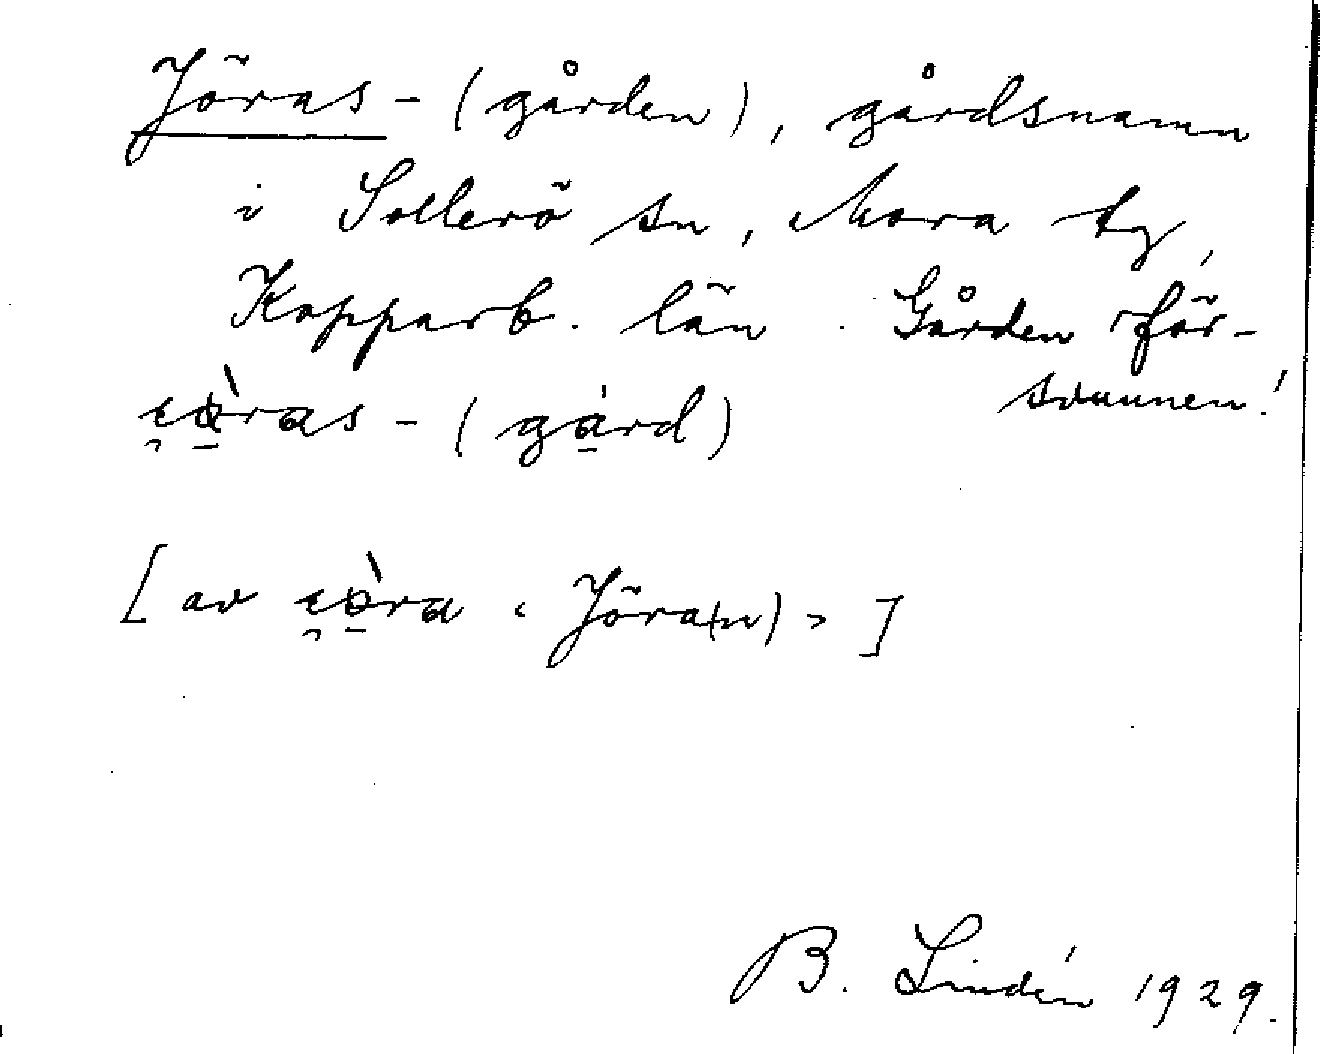 Jöras - (gården), gårdsnamn
i Sollerö sn, Mora tg,
Kopparb. län. Gården för-
svunnen!
- (gård)
[av ‹ Jöra(n) › ]
B. Lindén 1929.